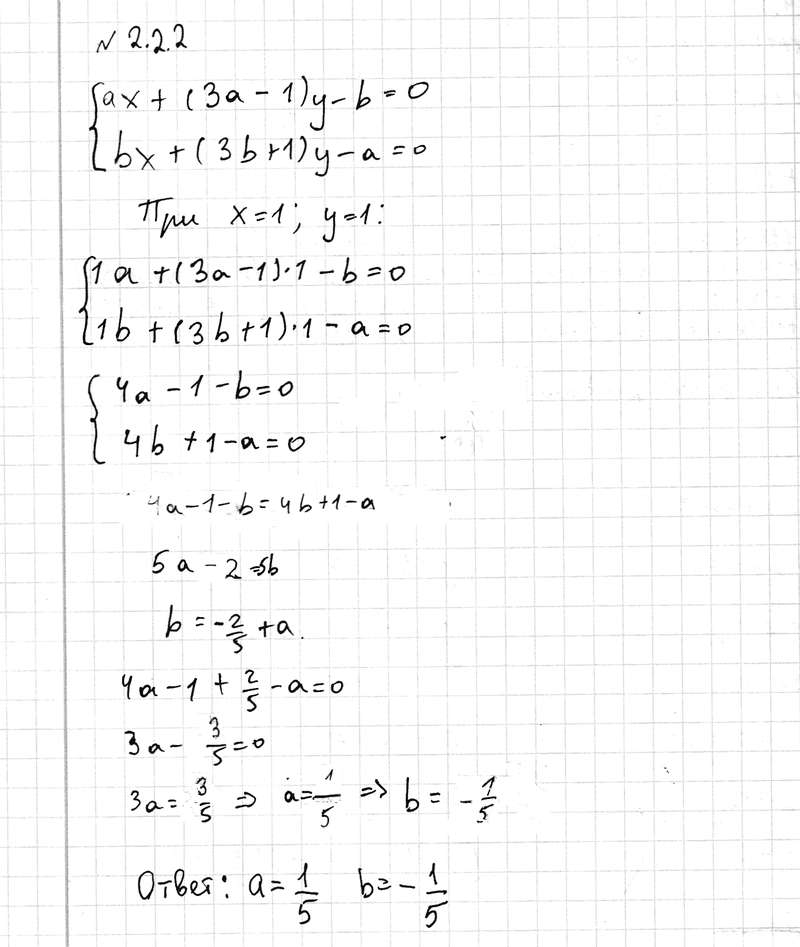 N 2.2.2
{ax + (3a - 1)y - b = 0
{bx + (3b+1)y - a = 0
При x=1; y=1:
{1a + (3a-1)·1 - b = 0
{1b + (3b+1)·1 - a = 0
{4a - 1 - b = 0
{4b + 1 - a = 0
4a-1-b = 4b+1-a
5a - 2 = 5b
b = -2/5 + a.
4a - 1 + 2/5 - a = 0
3a - 3/5 = 0
3a = 3/5 => a = 1/5 => b = -1/5
Ответ: a = 1/5 b = -1/5